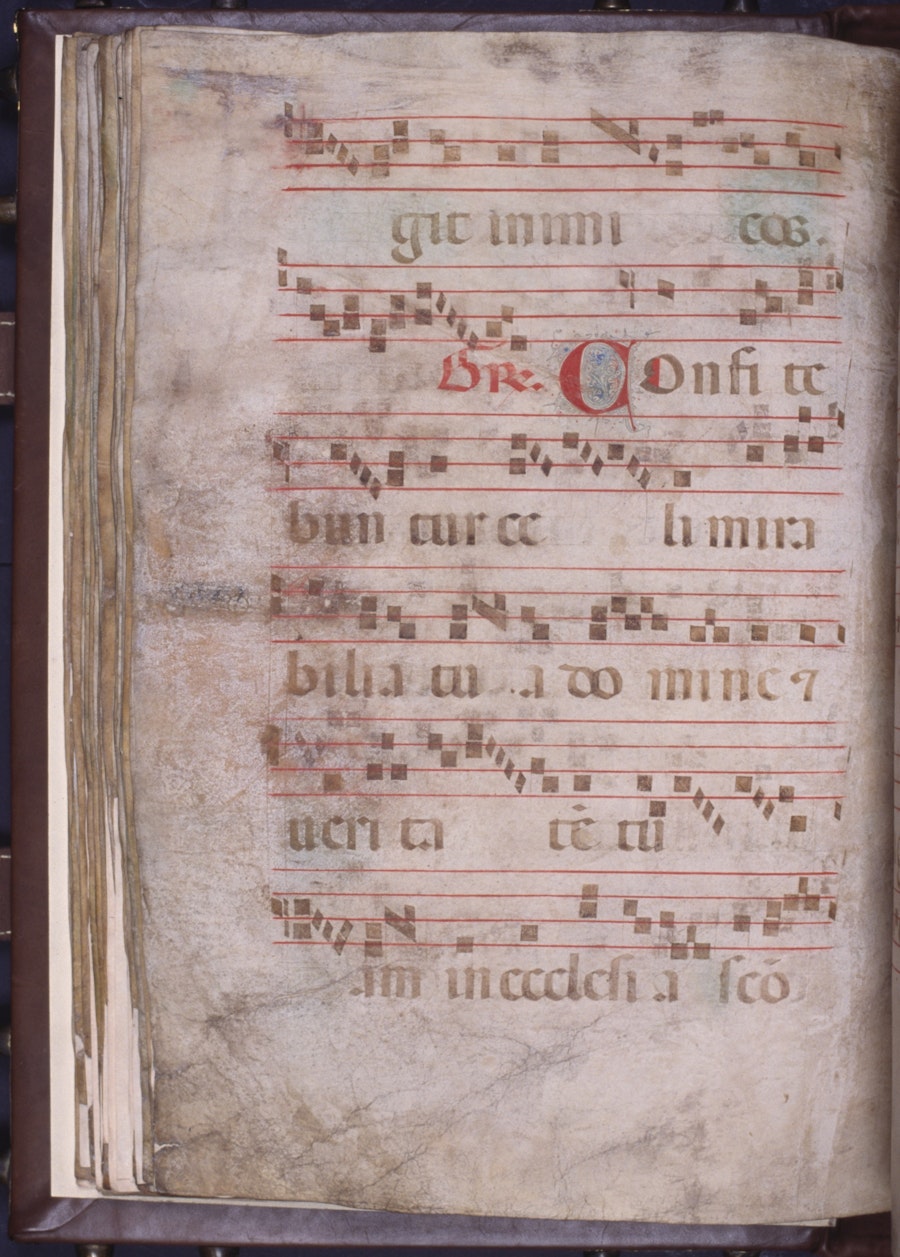 git inimi cos.
Gre. Confite
bun tur ce li mira
bilia tu a do mine ⁊
ueri ta tē tu
am in ecclesi a scō